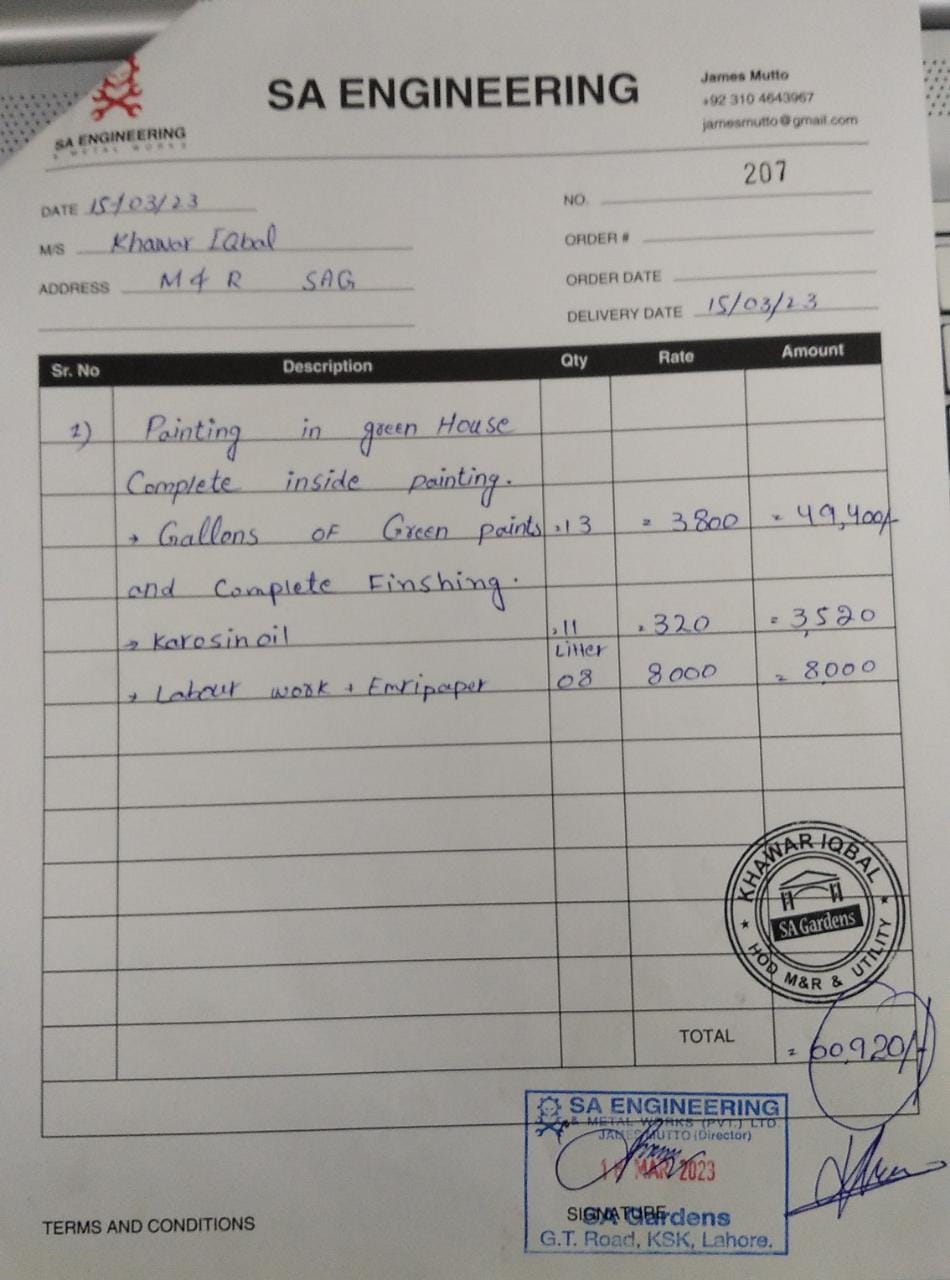 SA ENGINEERING
& METAL WORKS
SA ENGINEERING
James Mutto
+92 310 4643967
jamesmutto@gmail.com
DATE 15/03/23
NO. 207
M/S Khawar IQbal
ORDER #
ADDRESS M & R SAG
ORDER DATE
DELIVERY DATE 15/03/23
Sr. No Description Qty Rate Amount
1) Painting in green House
Complete inside painting.
→ Gallons OF Green paints 13 = 3800 = 49,400/-
and Complete Finshing.
→ Karosin oil 11 320 = 3,520
Litter
→ Labour work + Emripaper 08 8000 = 8000
KHAWAR IQBAL
SA Gardens
HOD M&R & UTILITY
TOTAL = 60,920/-
SA ENGINEERING
& METAL WORKS (PVT.) LTD.
JAMES MUTTO (Director)
MAR 2023
SIGNATURE
SA Gardens
G.T. Road, KSK, Lahore.
TERMS AND CONDITIONS